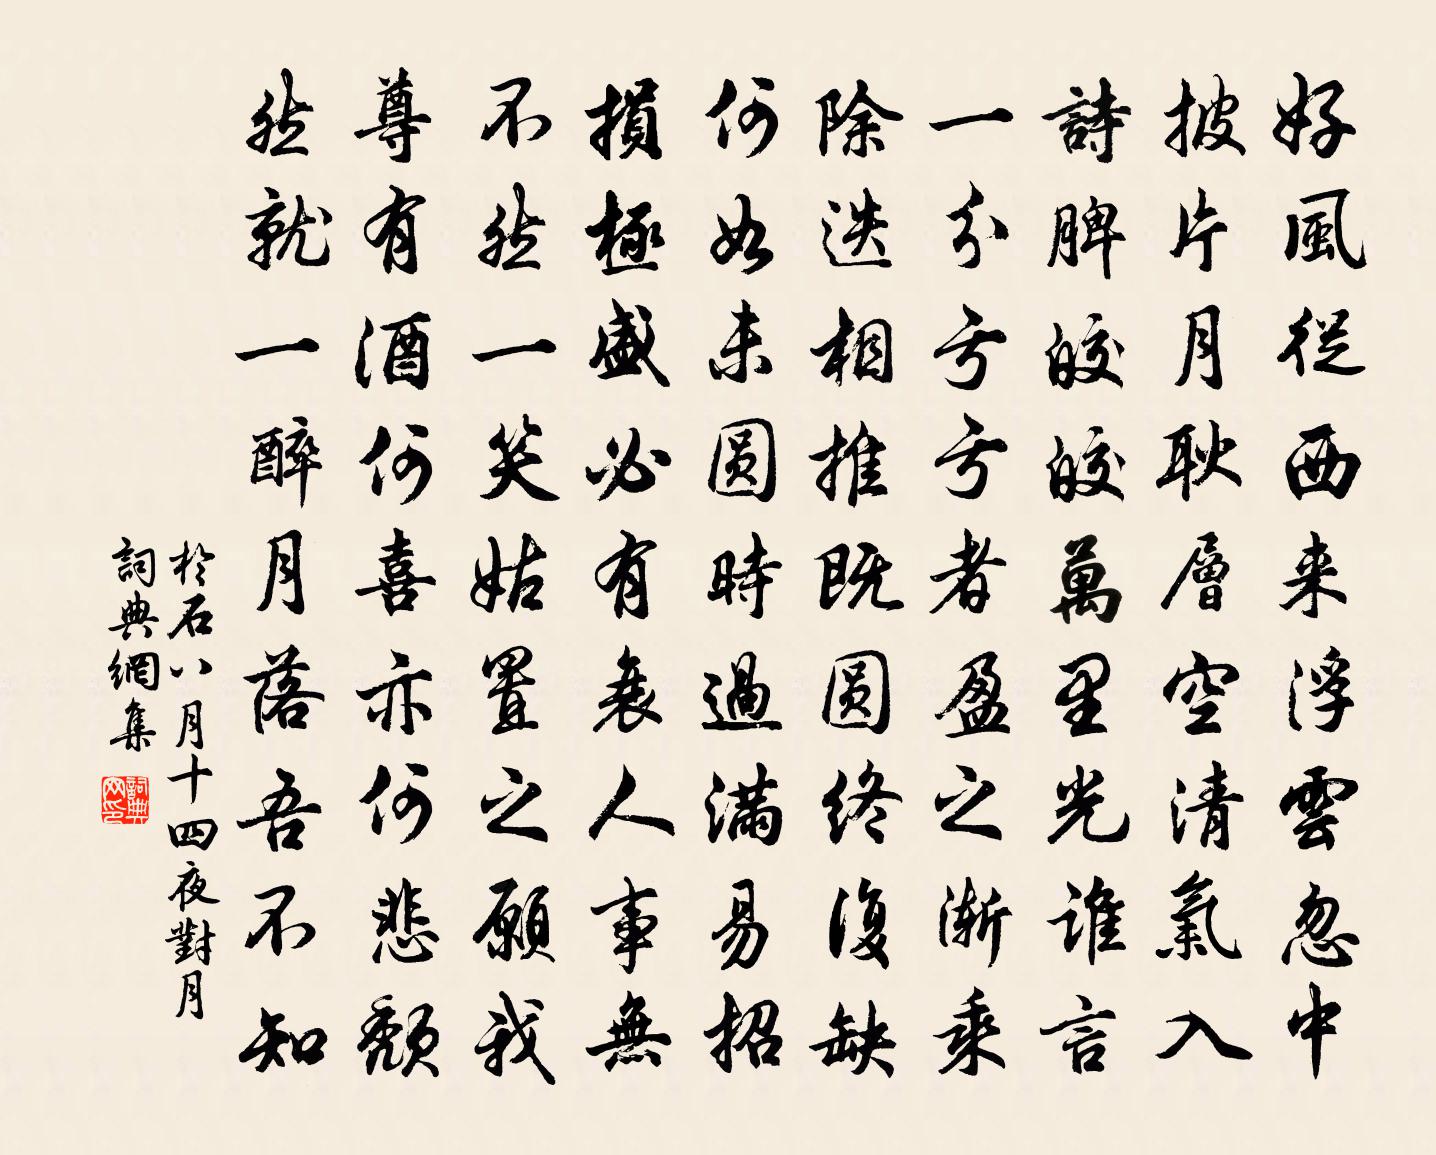 好風從西来浮雲忽中
披片月耿層空清氣入
詩脾皎皎萬里光誰言
一分亏亏者盈之漸乘
除迭相推既圆終復缺
何如未圆時過滿易招
損極盛必有衰人事無
不然一笑姑置之願我
尊有酒何喜亦何悲頹
然就一醉月落吾不知
於石八月十四夜對月
詞典網集
詞典
网印